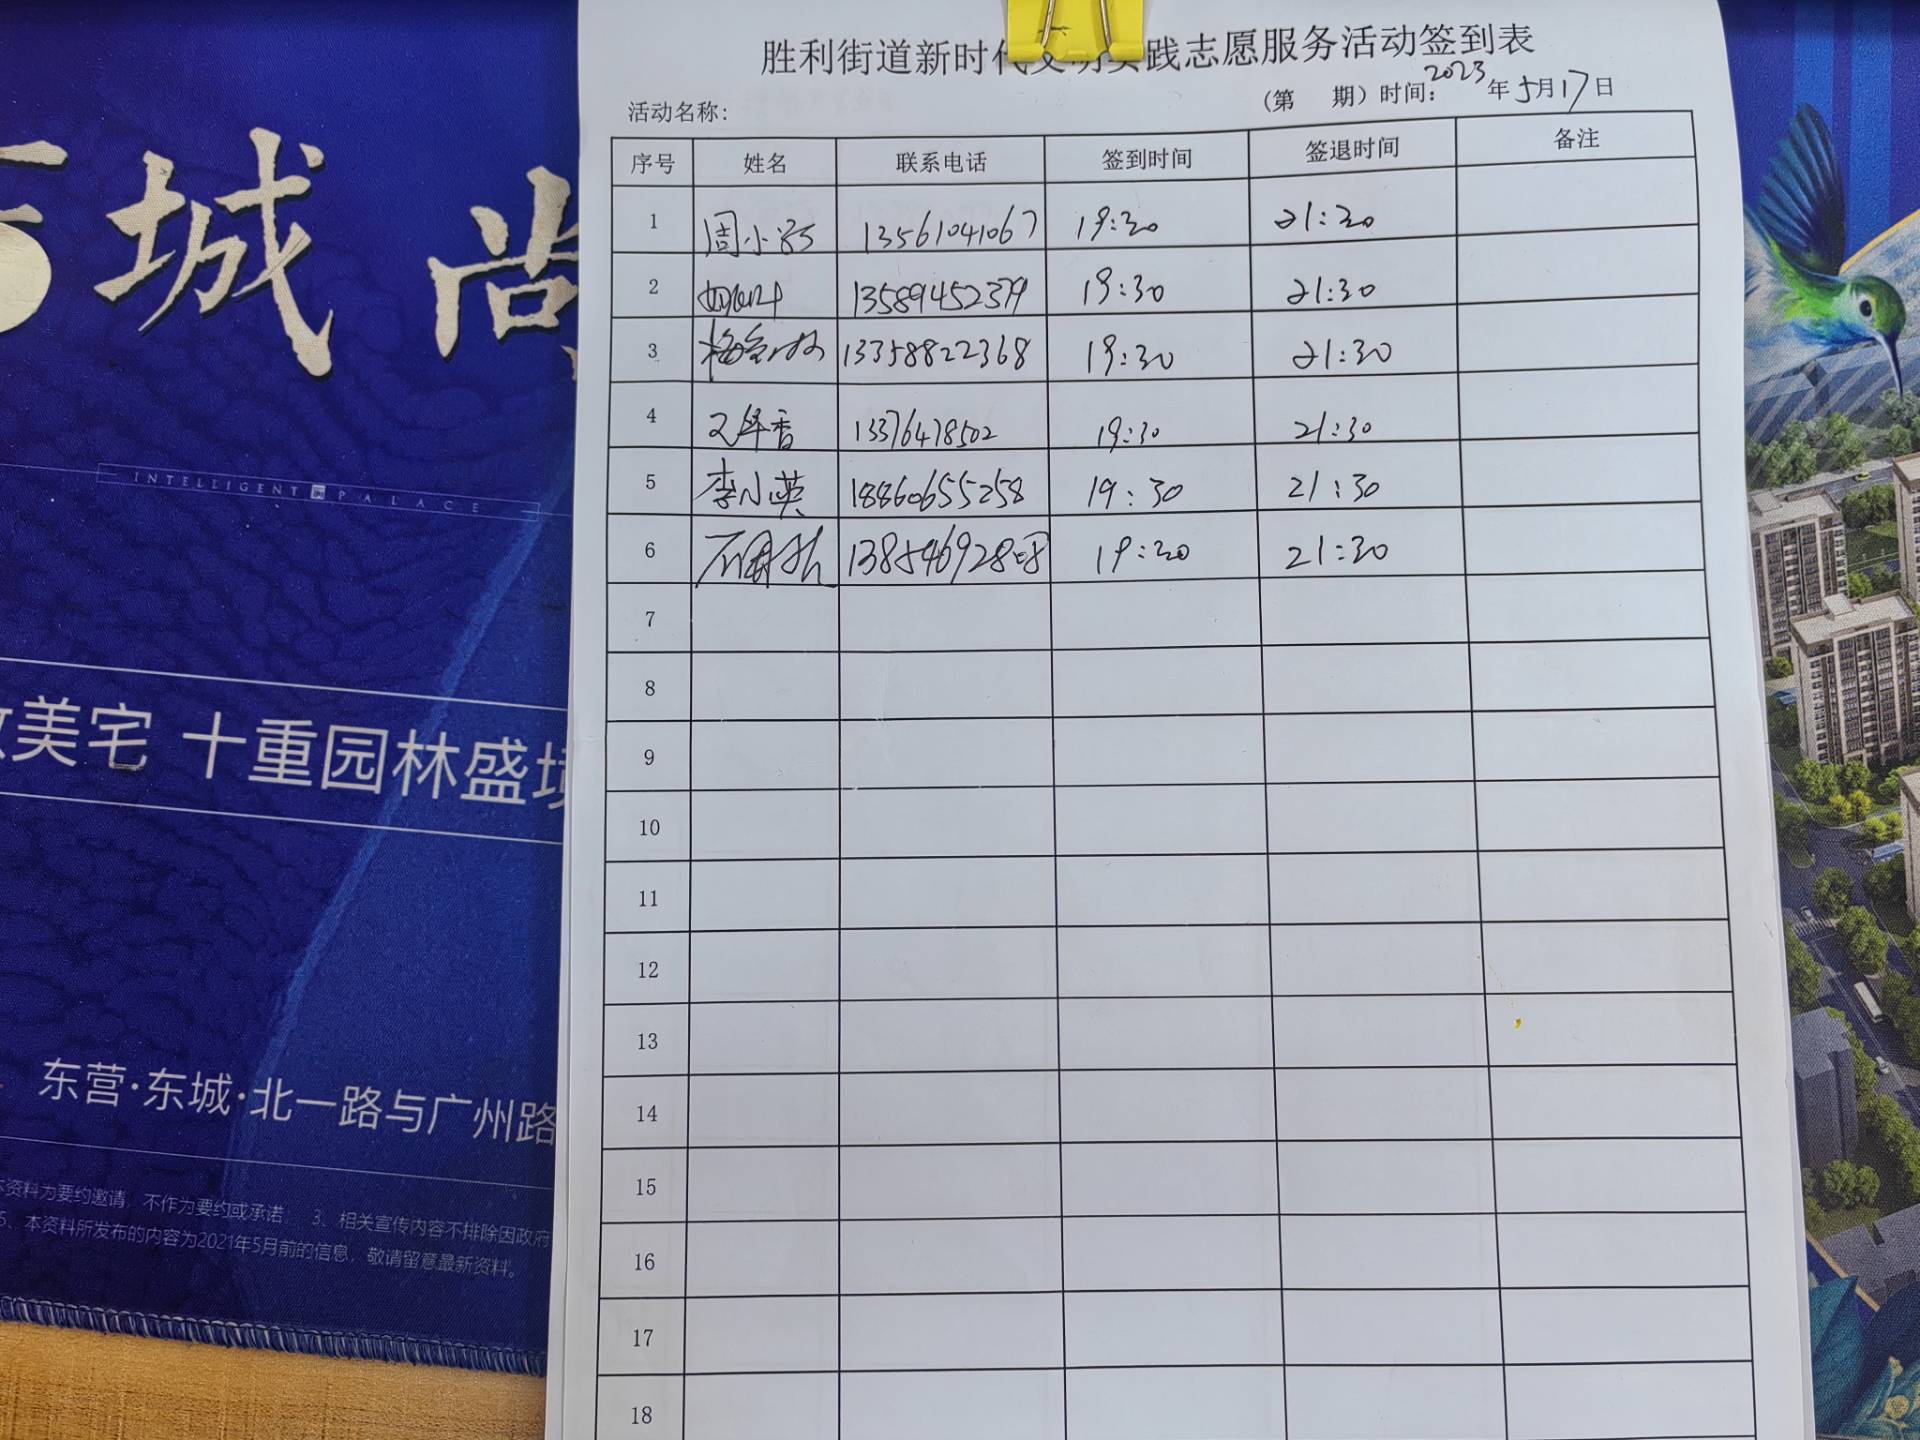 胜利街道新时代文明实践志愿服务活动签到表
活动名称:
(第 期) 时间: 2023年5月17日
序号 姓名 联系电话 签到时间 签退时间 备注
1 周小 13561041067 19:30 21:30
2 13589452379 19:30 21:30
3 13358822368 19:30 21:30
4 13376478502 19:30 21:30
5 李小英 18860655258 19:30 21:30
6 13854692808 19:30 21:30
7
8
9
10
11
12
13
14
15
16
17
18
城 尚
INTELLIGENT PALACE
美宅 十重园林盛境
东营·东城·北一路与广州路
本资料为要约邀请，不作为要约或承诺； 3、相关宣传内容不排除因政府
5、本资料所发布的内容为2021年5月前的信息，敬请留意最新资料。